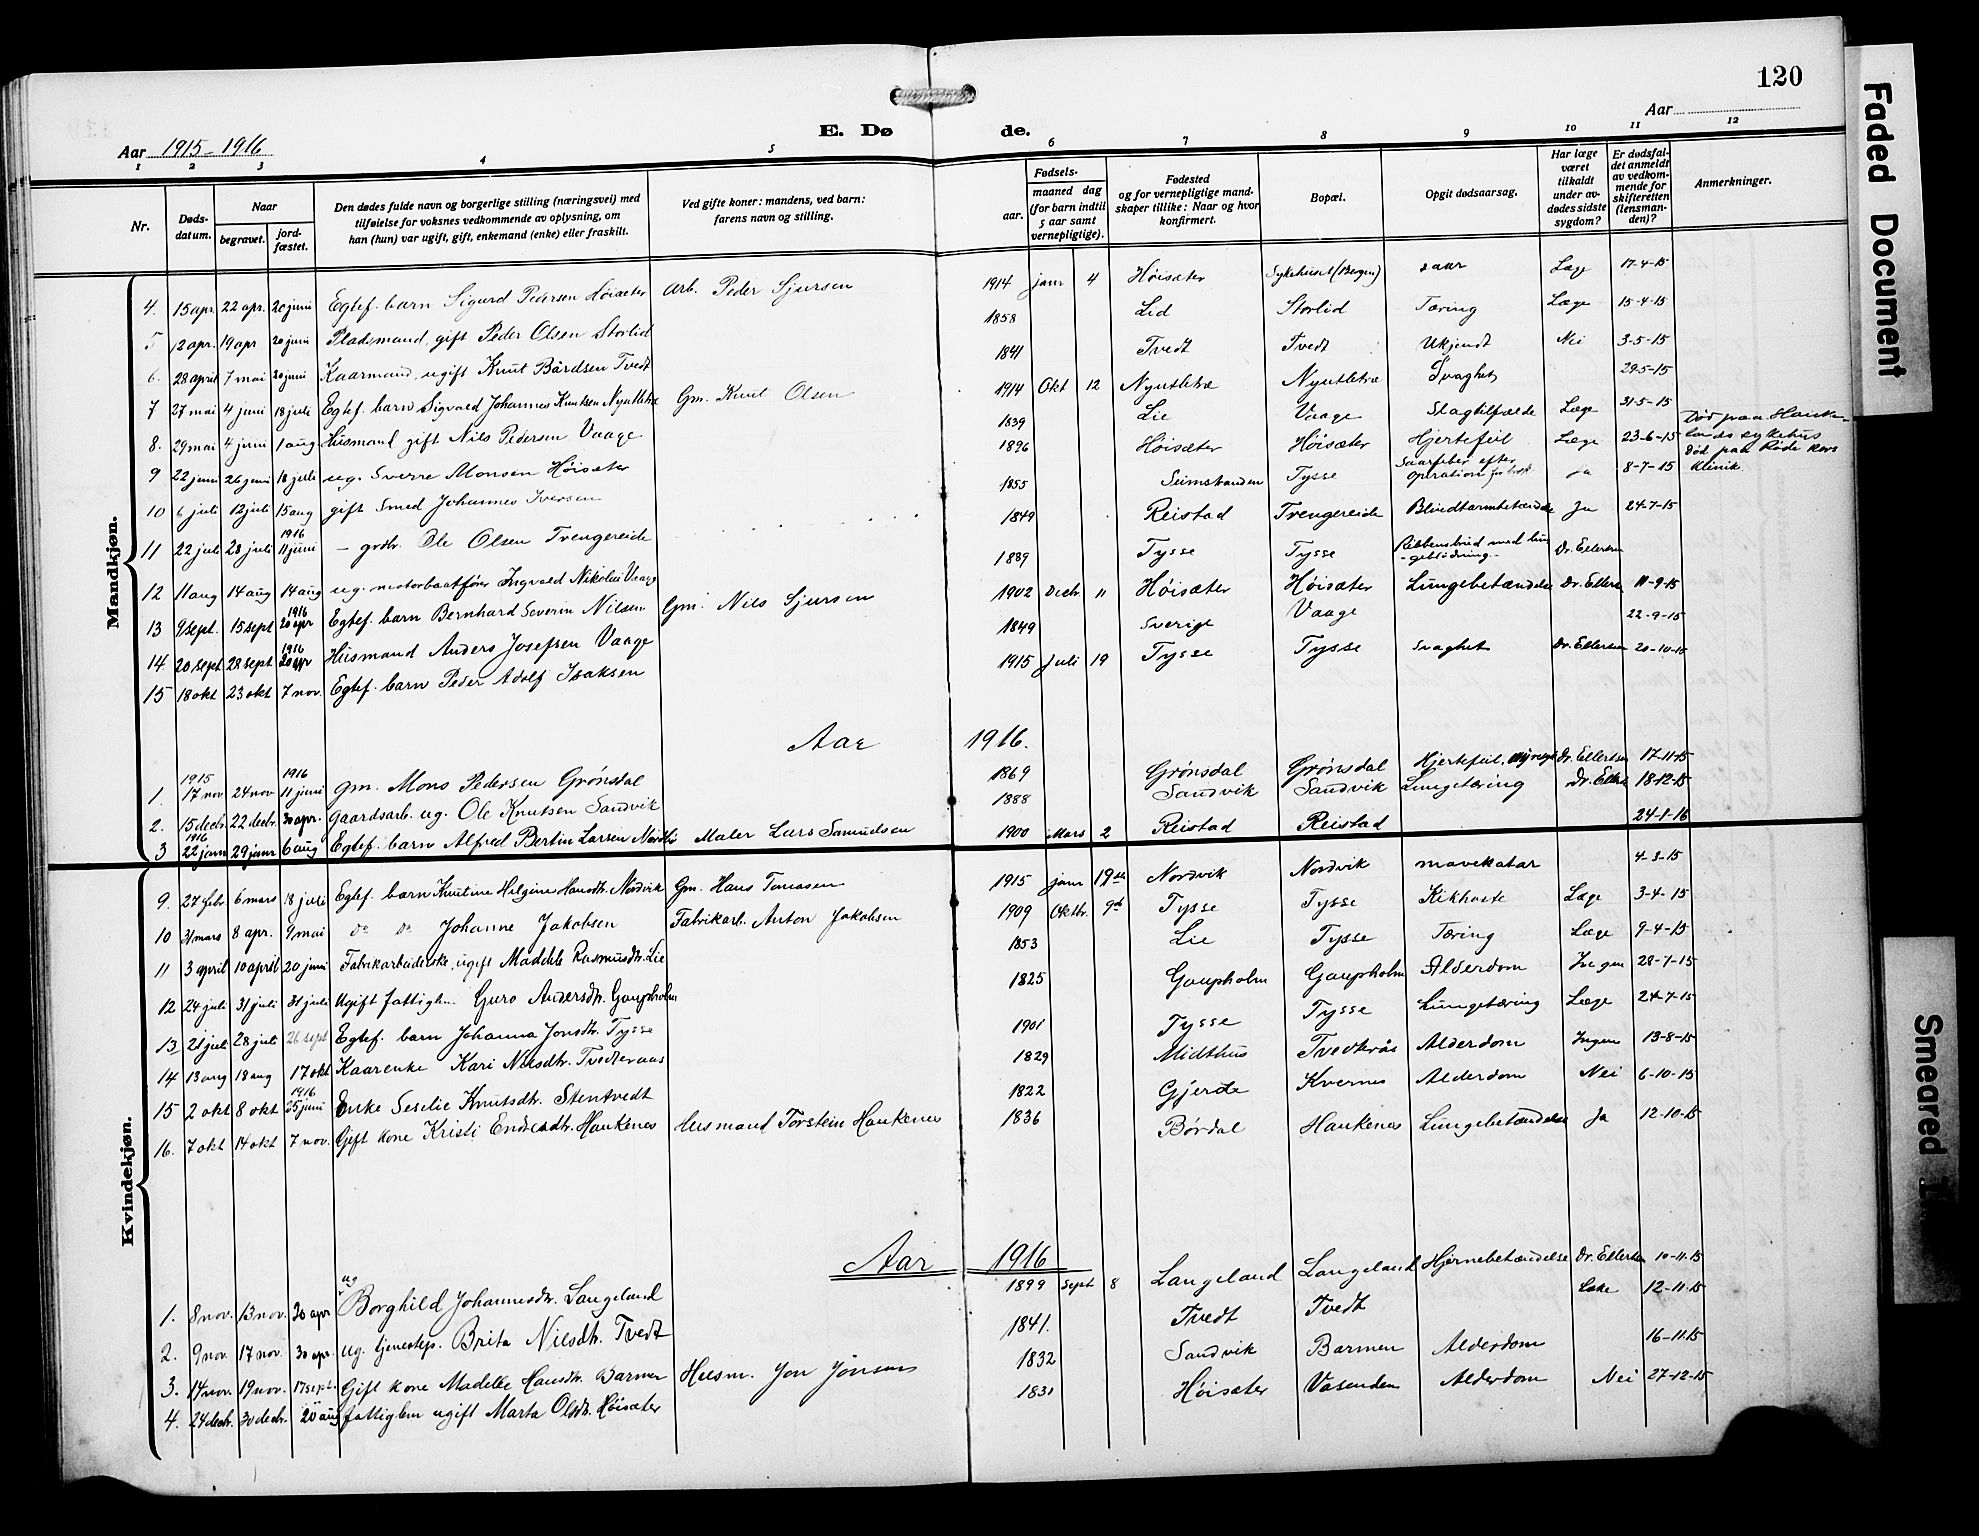 120
Aar 1915-1916
E. Døde.
Aar
1 2 3 4 5 6 7 8 9 10 11 12
Nr.
Dødsdatum.
Naar
begravet.
jordfæstet.
Den dødes fulde navn og borgerlige stilling (næringsvei) med
tilføielse for voksnes vedkommende av oplysning, om
han (hun) var ugift, gift, enkemand (enke) eller fraskilt.
Ved gifte koner: mandens, ved barn:
farens navn og stilling.
Fødsels-
aar.
maaned dag
(for barn indtil
5 aar samt
vernepligtige).
Fødested
og for vernepligtige mandskaper tillike: Naar og hvor
konfirmert.
Bopæl.
Opgit dødsaarsag.
Har læge
været
tilkaldt
under avdødes sidste
sygdom?
Er dødsfaldet anmeldt
av vedkommende for
skifteretten
(lensmanden)?
Anmerkninger.
Mandkjøn.
4. 15 apr. 22 apr. 20 juni Egtef. barn Sigurd Pedersen Høisæter Arb. Peder Sjursen 1914 janr 4 Høisæter Sykehuset (Bergen) Læge 17-4-15
5 12 apr. 19 apr 20 juni Pladsmand, gift Peder Olsen Storlid 1858 Lid Storlid Tæring Læge 15-4-15
6. 28 april 7 mai 20 juni Kaarmand, ugift Knut Bårdsen Tvedt 1841 Tvedt Tvedt Ukjendt Nei 3-5-15
7 27 mai 4 juni 18 juli Egtef. barn Sigvald Johannes Knutsen Nyutletræ Gm. Knut Olsen 1914 Okt 12 Nyutletræ Nyutletræ Svaghet 29-5-15
8. 29 mai 4 juni 1 aug Husmand gift Nils Pedersen Vaage 1839 Lie Vaage Slagtilfælde Læge 31-5-15
9 22 juni 26 juni 18 juli ug. Sverre Monsen Høisæter 1896 Høisæter Høisæter Hjertefeil Læge 23-6-15 Død paa Haukelands sykehus
10 6 juli 12 juli 15 aug gift Smed Johannes Iversen 1855 Seimstranden Tysse Saarfeber efter operation for Ja 8-7-15 Død paa Røde Kors Klinik
11 22 juli 28 juli 1916 11 juni - grdbr. Ole Olsen Trengereide 1849 Reistad Trengereide Blindtarmbetændelse Ja 24-7-15
12 11 aug 14 aug 14 aug ug. motorbaatfører Ingvald Nikolai Vaage 1889 Tysse Tysse Ribbensbrud med Dr. Ellertsen
13 9 sept. 15 sept 1916 20 apr Egtef. barn Bernhard Severin Nilsen Gm. Nils Sjursen 1902 Decbr. 11 Høisæter Høisæter Lungebetændelse Dr. Ellertsen 11-9-15
14 20 sept 28 sept 1916 20 apr Husmand Anders Josefsen Vaage 1849 Sverige Vaage 22-9-15
15 18 okt 23 okt 7 nov. Egtef. barn Peder Adolf Isaksen 1915 Juli 19 Tysse Tysse Svaghet Dr. Ellertsen 20-10-15
Aar 1916.
1. 1915 17 nov 24 nov 1916 11 juni Gm. Mons Pedersen Grønsdal 1869 Grønsdal Grønsdal Hjertefeil, Dr. Ellertsen 17-11-15
2. 15 decbr. 22 decbr. 30 apr. Gaardsarb. ug. Ole Knutsen Sandvik 1888 Sandvik Sandvik Lungetæring Dr. Ellerts 18-12-15
3 1916 22 janr 29 janr 6 aug Egtef. barn Alfred Bertin Larsen Maler Lars Samuelsen 1900 Mars 2 Reistad Reistad 24-1-16
Kvindekjøn.
9. 27 febr 6 mars 18 juli Egtef. barn Knutine Helgine Hansdtr. Nordvik Gm. Hans Tomasen 1915 janr 19de Nordvik Nordvik mavekatar 4-3-15
10 31 mars 8 apr. 9 mai do do Johanne Jakobsen Fabrikarb. Anton Jakobsen 1909 Oktbr. 9de Tysse Tysse Kikhoste Læge 3-4-15
11 3 april 10 april 20 juni Fabrikarbeiderske, ugift Madele Rasmusdtr. Lie 1853 Lie Tysse Tæring Læge 9-4-15
12 24 juli 31 juli 31 juli Ugift fattiglm. Guro Andersdtr. Gaupholm 1825 Gaupholm Gaupholm Alderdom Ingen 28-7-15
13 21 juli 28 juli 26 sept Egtef. barn Johanna Jonsdtr. Tysse 1901 Tysse Tysse Lungetæring Læge 24-7-15
14 13 aug 18 aug 17 okt Kaarenke Kari Nilsdtr. Tvedteraas 1829 Midthus Tvedterås Alderdom Ingen 13-8-15
15 2 okt 8 okt 1916 25 juni Enke Seselie Knutsdtr. Stentvedt 1822 Gjerde Kvernes Alderdom Nei 6-10-15
16. 7 okt 14 okt 7 nov. Gift kone Kristi Endredtr. Haukenes Husmand Torstein Haukenes 1836 Børdal Haukenes Lungebetændelse Ja 12-10-15
Aar 1916
1. 8 nov. 13 nov. 30 apr ug Borghild Johannesdtr. Langeland 1899 Sept 8 Langeland Langeland Hjernebetændelse Dr. Ellertsen 10-11-15
2. 9 nov. 17 nov. 30 apr. ug. tjenestep. Brita Nilsdtr. Tvedt 1841. Tvedt Tvedt 12-11-15
3. 14 nov. 19 nov. 17 sept. Gift kone Madelle Hansdtr. Barmen Husm. Jon Jonsen 1832 Sandvik Barmen Alderdom 16-11-15
4. 24 decbr. 30 decbr. 20 aug fattiglem ugift Marta Olsdtr. Høisæter 1831 Høisæter Vasenden Alderdom Nei 27-12-15
Faded Document
Smeared